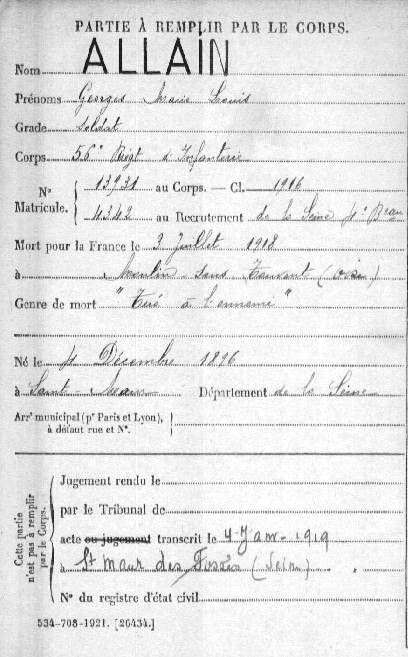 PARTIE À REMPLIR PAR LE CORPS.
Nom ALLAIN
Prénoms Georges Marie Louis
Grade Soldat
Corps 56e Régt d'Infanterie
Nº Matricule. 13931 au Corps. — Cl. 1916
4342 au Recrutement de la Seine 4e Brau
Mort pour la France le 3 Juillet 1918
à Moulin-sous-Touvent (Oise)
Genre de mort "Tué à l'ennemi"
Né le 4 Décembre 1896
à Saint-Maur Département de la Seine
Arrt municipal (pr Paris et Lyon),
à défaut rue et Nº.
Cette partie
n'est pas à remplir
par le Corps.
Jugement rendu le
par le Tribunal de
acte ou jugement transcrit le 4 Janv. 1919
à St Maur des Fossés (Seine)
Nº du registre d'état civil
534-708-1921. [26434.]